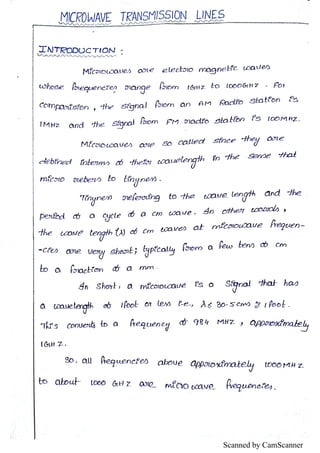 MICROWAVE TRANSMISSION LINES
INTRODUCTION :
Microwaves are electro magnetic waves
whose frequencies range from 1GHz to 1000GHz. For
comparision, the signal from an AM Radio station is
1MHz and the signal from FM radio station is 100MHz.
Microwaves are so called since they are
defined interms of their wavelength in the sense that
micro refers to tinyness.
Tinyness referring to the wave length and the
period of a cycle of a cm wave. In other words,
the wave length (λ) of cm waves at microwave frequen-
-cies are very short; typically from a few tens of cm
to a fraction of a mm.
In short, a microwave is a signal that has
a wavelength of 1foot or less i.e., λ ≤ 30.5cms ≅ 1foot.
This converts to a frequency of 984 MHz, approximately
1GHz.
So, all frequencies above approximately 1000MHz
to about 1000 GHz are microwave frequencies.
Scanned by CamScanner